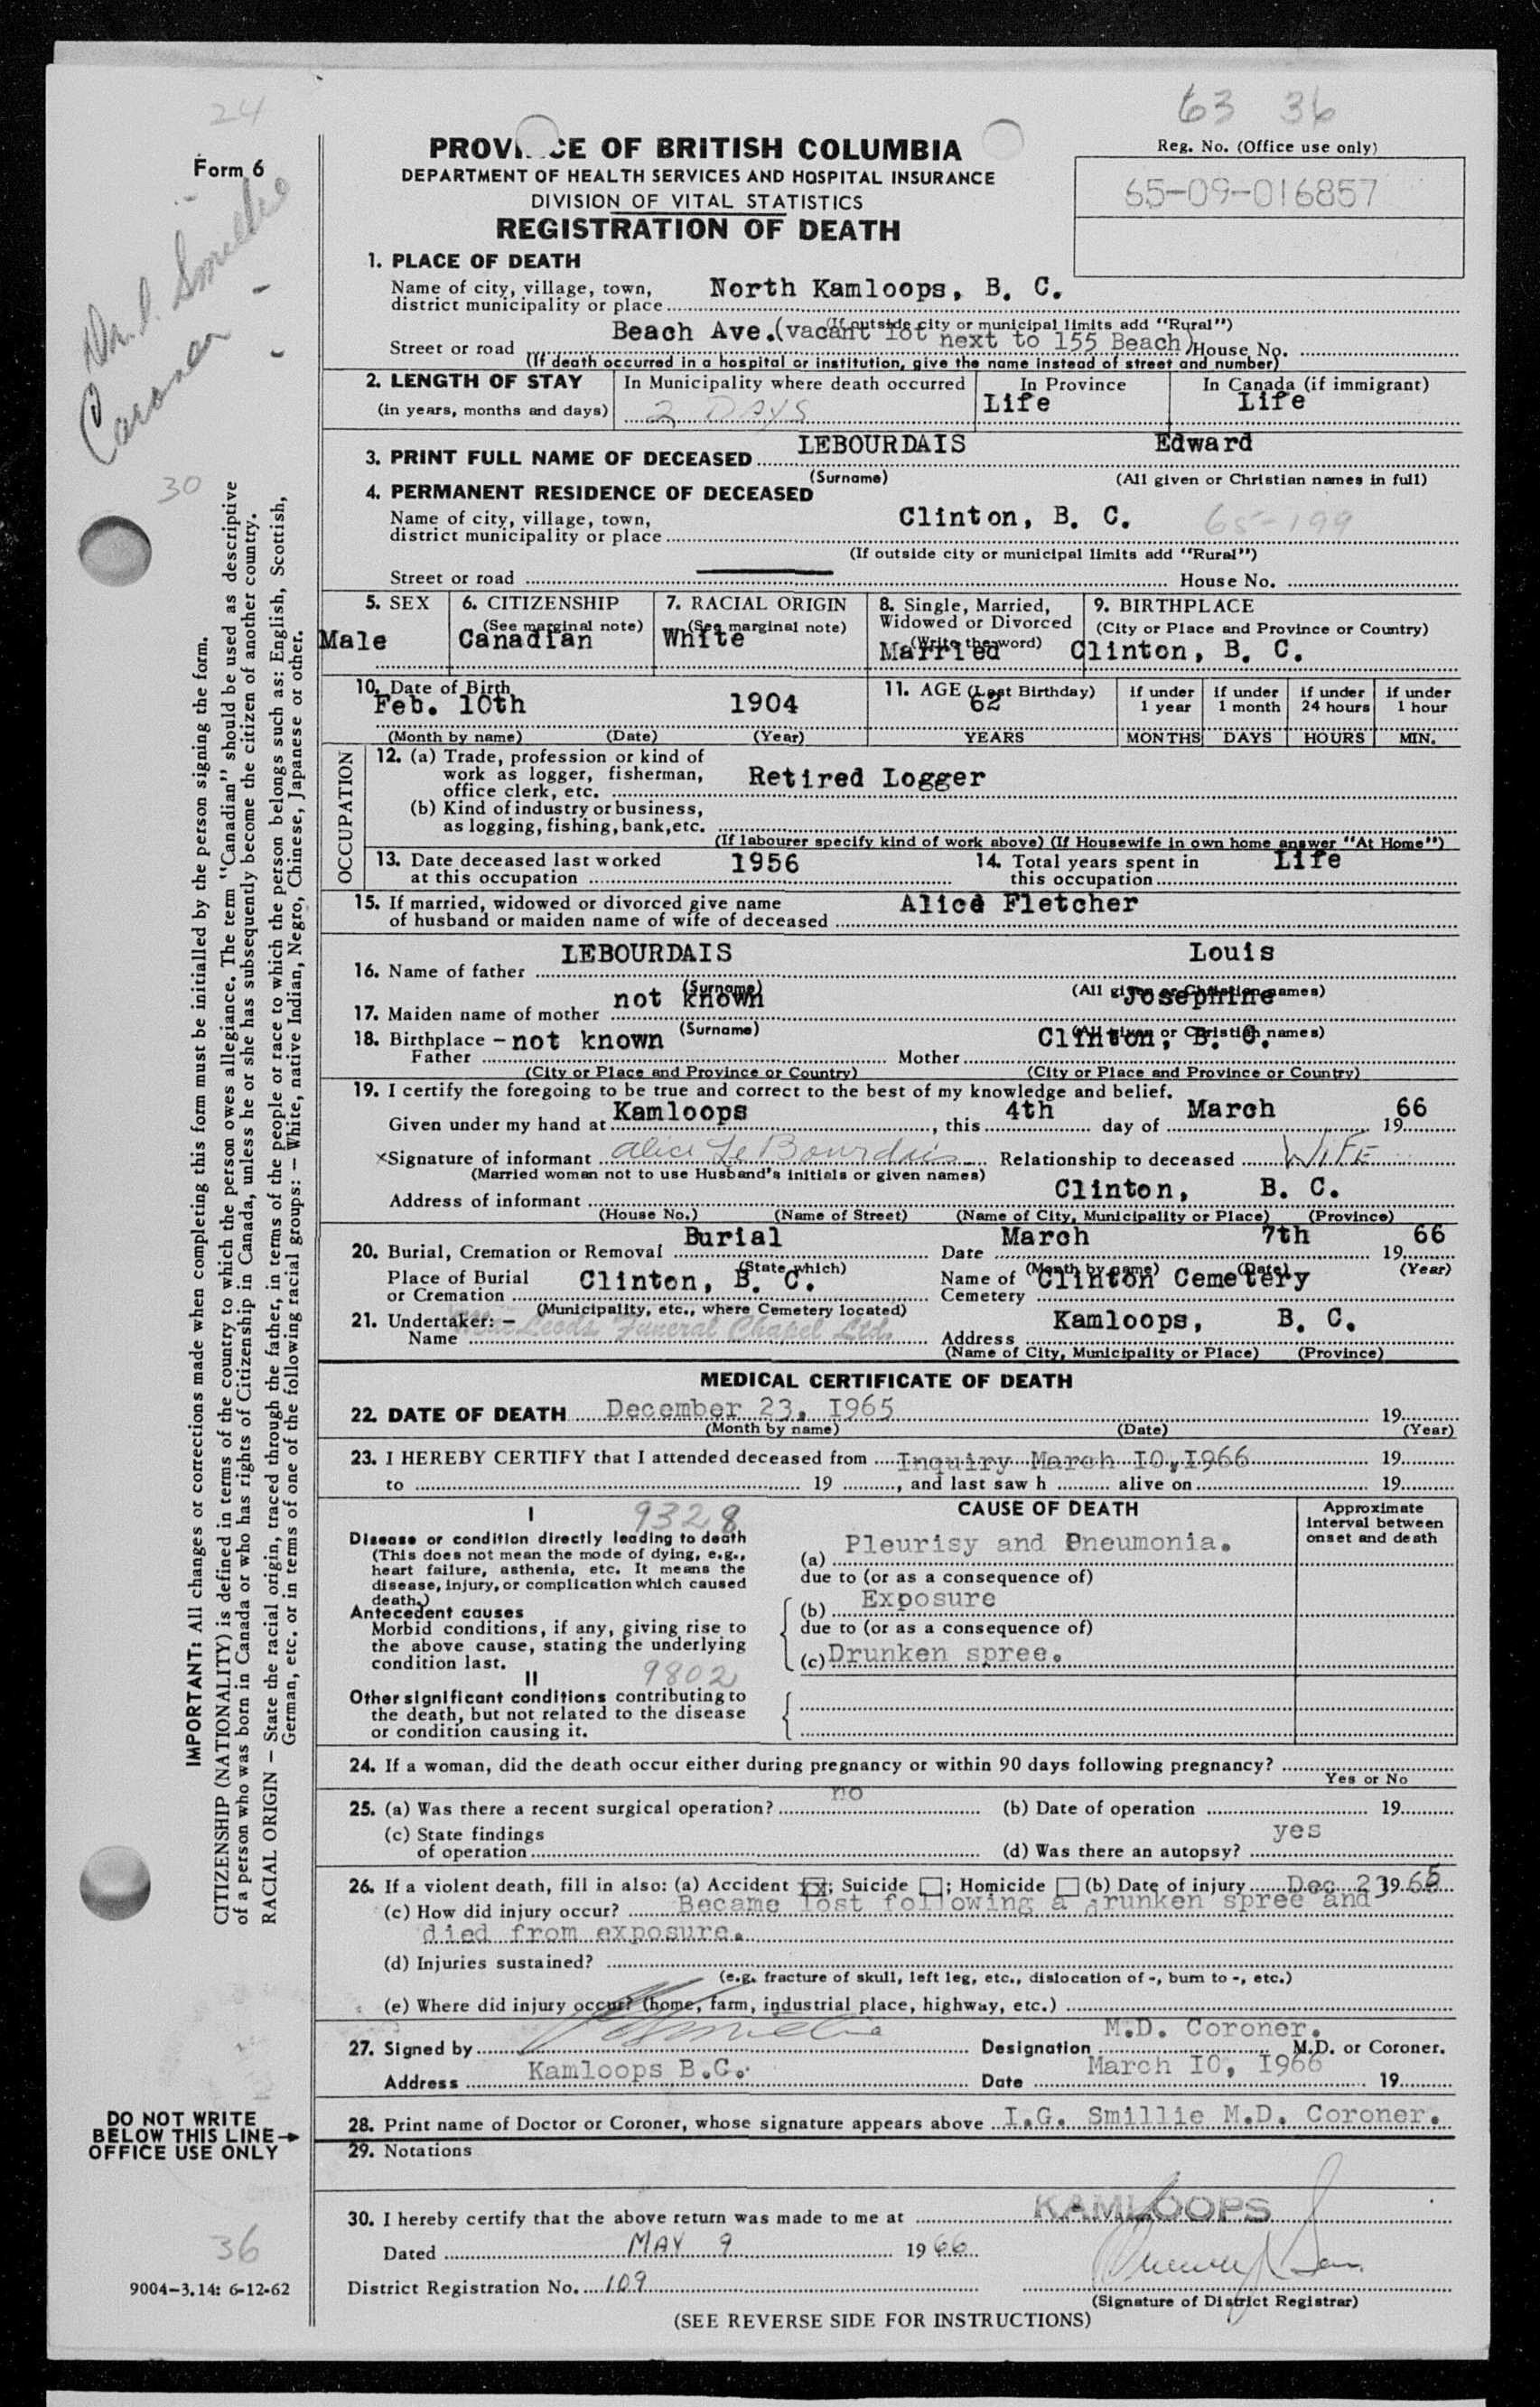 24
63 36
Form 6
PROVI CE OF BRITISH COLUMBIA
Reg. No. (Office use only)
DEPARTMENT OF HEALTH SERVICES AND HOSPITAL INSURANCE
65-09-016857
DIVISION OF VITAL STATISTICS
REGISTRATION OF DEATH
Dr. I. Smillie
Coroner
30
1. PLACE OF DEATH
Name of city, village, town, district municipality or place North Kamloops, B. C.
(If outside city or municipal limits add "Rural")
Street or road Beach Ave.(vacant lot next to 155 Beach) House No.
(If death occurred in a hospital or institution, give the name instead of street and number)
2. LENGTH OF STAY In Municipality where death occurred In Province In Canada (if immigrant)
(in years, months and days) 2 DAYS Life Life
3. PRINT FULL NAME OF DECEASED LEBOURDAIS Edward
(Surname) (All given or Christian names in full)
4. PERMANENT RESIDENCE OF DECEASED
Name of city, village, town, district municipality or place Clinton, B. C. 65-199
(If outside city or municipal limits add "Rural")
Street or road House No.
5. SEX 6. CITIZENSHIP 7. RACIAL ORIGIN 8. Single, Married, Widowed or Divorced 9. BIRTHPLACE
(See marginal note) (See marginal note) (Write the word) (City or Place and Province or Country)
Male Canadian White Married Clinton, B. C.
10. Date of Birth 11. AGE (Last Birthday) if under 1 year if under 1 month if under 24 hours if under 1 hour
Feb. 10th 1904 62
(Month by name) (Date) (Year) YEARS MONTHS DAYS HOURS MIN.
OCCUPATION
12. (a) Trade, profession or kind of work as logger, fisherman, office clerk, etc. Retired Logger
(b) Kind of industry or business, as logging, fishing, bank, etc.
(If labourer specify kind of work above) (If Housewife in own home answer "At Home")
13. Date deceased last worked at this occupation 1956 14. Total years spent in this occupation Life
15. If married, widowed or divorced give name of husband or maiden name of wife of deceased Alice Fletcher
16. Name of father LEBOURDAIS Louis
(Surname) (All given or Christian names)
17. Maiden name of mother not known Josephine
(Surname) (All given or Christian names)
18. Birthplace - Father not known Mother Clinton, B. C.
(City or Place and Province or Country) (City or Place and Province or Country)
19. I certify the foregoing to be true and correct to the best of my knowledge and belief.
Given under my hand at Kamloops, this 4th day of March 1966
xSignature of informant Alice Le Bourdais Relationship to deceased WIFE
(Married woman not to use Husband's initials or given names)
Address of informant Clinton, B. C.
(House No.) (Name of Street) (Name of City, Municipality or Place) (Province)
20. Burial, Cremation or Removal Burial Date March 7th 1966
(State which) (Month by name) (Date) (Year)
Place of Burial or Cremation Clinton, B. C. Name of Cemetery Clinton Cemetery
(Municipality, etc., where Cemetery located)
21. Undertaker: - Name MacLeods Funeral Chapel Ltd. Address Kamloops, B. C.
(Name of City, Municipality or Place) (Province)
MEDICAL CERTIFICATE OF DEATH
22. DATE OF DEATH December 23, I965 19
(Month by name) (Date) (Year)
23. I HEREBY CERTIFY that I attended deceased from Inquiry March IO,I966 19
to 19, and last saw h alive on 19
I 9328 CAUSE OF DEATH Approximate interval between onset and death
Disease or condition directly leading to death
(This does not mean the mode of dying, e.g., heart failure, asthenia, etc. It means the disease, injury, or complication which caused death.)
(a) Pleurisy and Pneumonia.
due to (or as a consequence of)
Antecedent causes
Morbid conditions, if any, giving rise to the above cause, stating the underlying condition last.
(b) Exposure
due to (or as a consequence of)
(c) Drunken spree.
II 9802
Other significant conditions contributing to the death, but not related to the disease or condition causing it.
24. If a woman, did the death occur either during pregnancy or within 90 days following pregnancy?
Yes or No
25. (a) Was there a recent surgical operation? no (b) Date of operation 19
(c) State findings of operation (d) Was there an autopsy? yes
26. If a violent death, fill in also: (a) Accident xx; Suicide; Homicide (b) Date of injury Dec 23 1965
(c) How did injury occur? Became lost following a drunken spree and
died from exposure.
(d) Injuries sustained?
(e.g. fracture of skull, left leg, etc., dislocation of -, burn to -, etc.)
(e) Where did injury occur? (home, farm, industrial place, highway, etc.)
27. Signed by Smillie Designation M.D. Coroner. M.D. or Coroner.
Address Kamloops B.C. Date March IO, I966 19
28. Print name of Doctor or Coroner, whose signature appears above I.G. Smillie M.D. Coroner.
DO NOT WRITE BELOW THIS LINE OFFICE USE ONLY
29. Notations
30. I hereby certify that the above return was made to me at KAMLOOPS
Dated MAY 9 1966
36
District Registration No. 109
(Signature of District Registrar)
9004-3.14: 6-12-62
(SEE REVERSE SIDE FOR INSTRUCTIONS)
IMPORTANT: All changes or corrections made when completing this form must be initialled by the person signing the form.
CITIZENSHIP (NATIONALITY) is defined in terms of the country to which the person owes allegiance. The term "Canadian" should be used as descriptive
of a person who was born in Canada or who has rights of Citizenship in Canada, unless he or she has subsequently become the citizen of another country.
RACIAL ORIGIN - State the racial origin, traced through the father, in terms of the people or race to which the person belongs such as: English, Scottish,
German, etc. or in terms of one of the following racial groups: - White, native Indian, Negro, Chinese, Japanese or other.